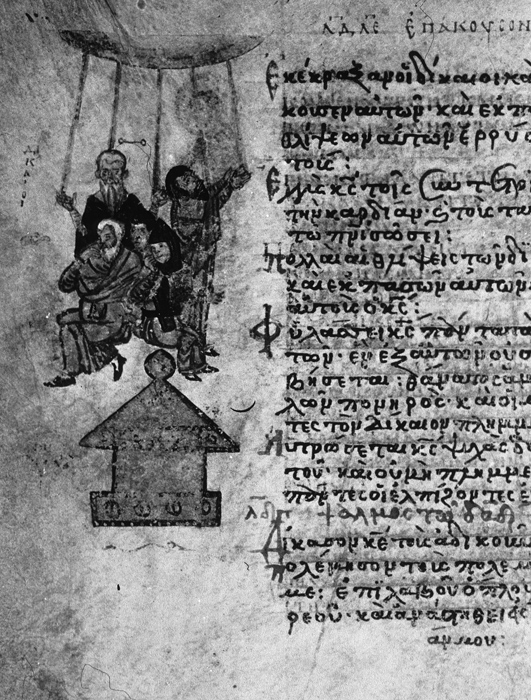 ΔΙΚΑΙΟΙ
ἐπακουσον
Εκέκραξαν οἱ δίκαιοι κα
κουσεν αὐτῶν· καὶ ἐκ π
θλίψεων αὐτῶν ἐρρύς
τοὺς:
Εγγὺς κς τοῖς συντετρι
τὴν καρδίαν· ϗ τοὺς τα
τῶ πνι σώσει:
Πολλαὶ αἱ θλίψεις τῶν δι
καὶ ἐκ πασῶν αὐτῶν
αὐτοὺς ὁ κς:
Φυλάσσει κς πάντα τὰ
τῶν· ἓν ἐξ αὐτῶν οὐ σ
βήσεται: θάνατος ἁμ
λῶν πονηρός· καὶ οἱ μ
τες τὸν δίκαιον πλημμ
Λυτρώσεται κς ψυχὰς δ
του· καὶ οὐ μὴ πλημμε
πάντες οἱ ἐλπίζοντες ἐ
ψαλμος τω δαδ
Δίκασον κε τοὺς ἀδικοῦν
πολέμησον τοὺς πολεμ
με: ἐπιλαβοῦ ὅπλου
ρεοῦ· καὶ ἀνάστηθι εἰς